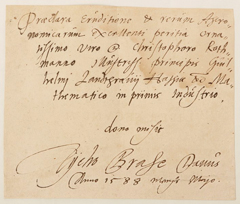 Præclara Eruditione et rerum Astro-
nomicarum Excellenti peritia Orna-
tissimo Viro D Christophoro Roth-
manno Illustriss: principis Guil-
helmi Landgravij Hassiæ Ma-
thematico in primis Industrio.
dono misit
Tycho Brahe Danus
Anno 1588 Mense Majo.